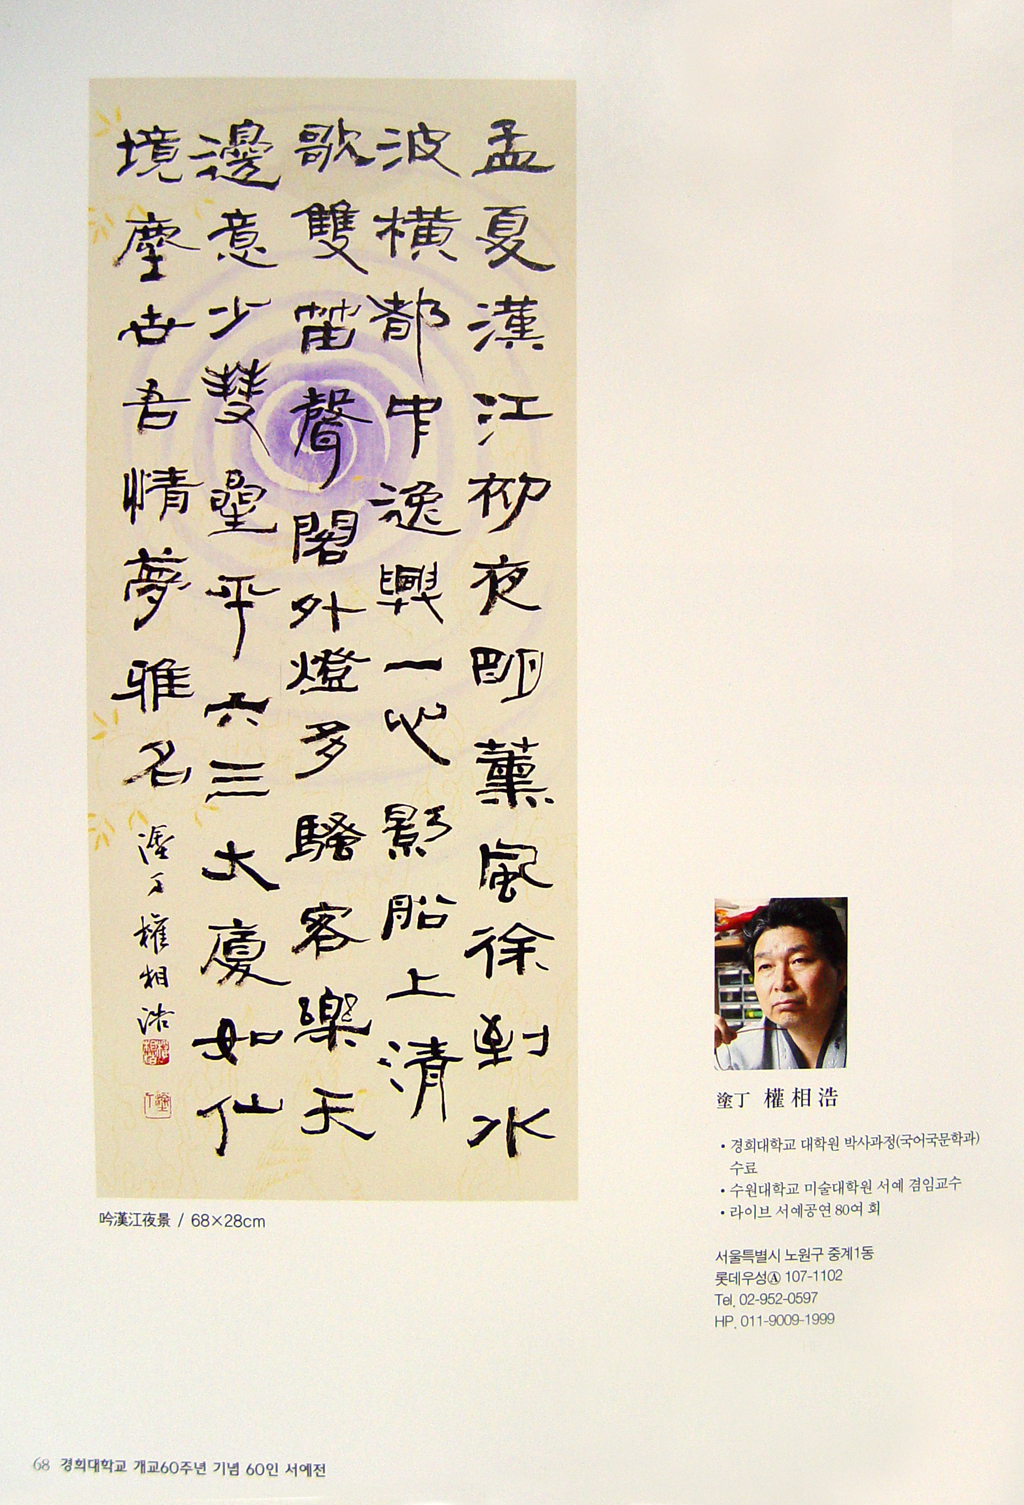 孟夏漢江初夜明薰風徐到水
波橫都中逸興一心影船上清
歌雙笛聲閣外燈多騷客樂天
邊意少雙星平六三大廈如仙
境塵世吾情夢雅名 塗丁權相浩
吟漢江夜景 / 68×28cm
塗丁 權相浩
• 경희대학교 대학원 박사과정(국어국문학과)
수료
• 수원대학교 미술대학원 서예 겸임교수
• 라이브 서예공연 80여 회
서울특별시 노원구 중계1동
롯데우성Ⓐ 107-1102
Tel. 02-952-0597
HP. 011-9009-1999
68 경희대학교 개교60주년 기념 60인 서예전